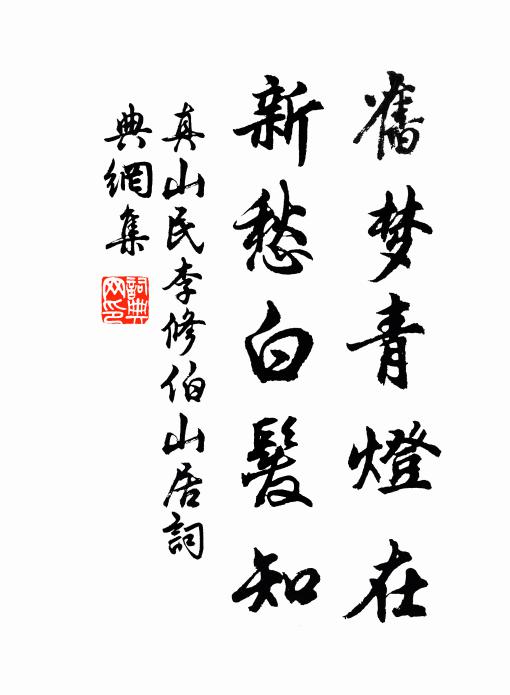 舊梦青燈在
新愁白髮知
真山民李修伯山居詞
典網集
詞典網印